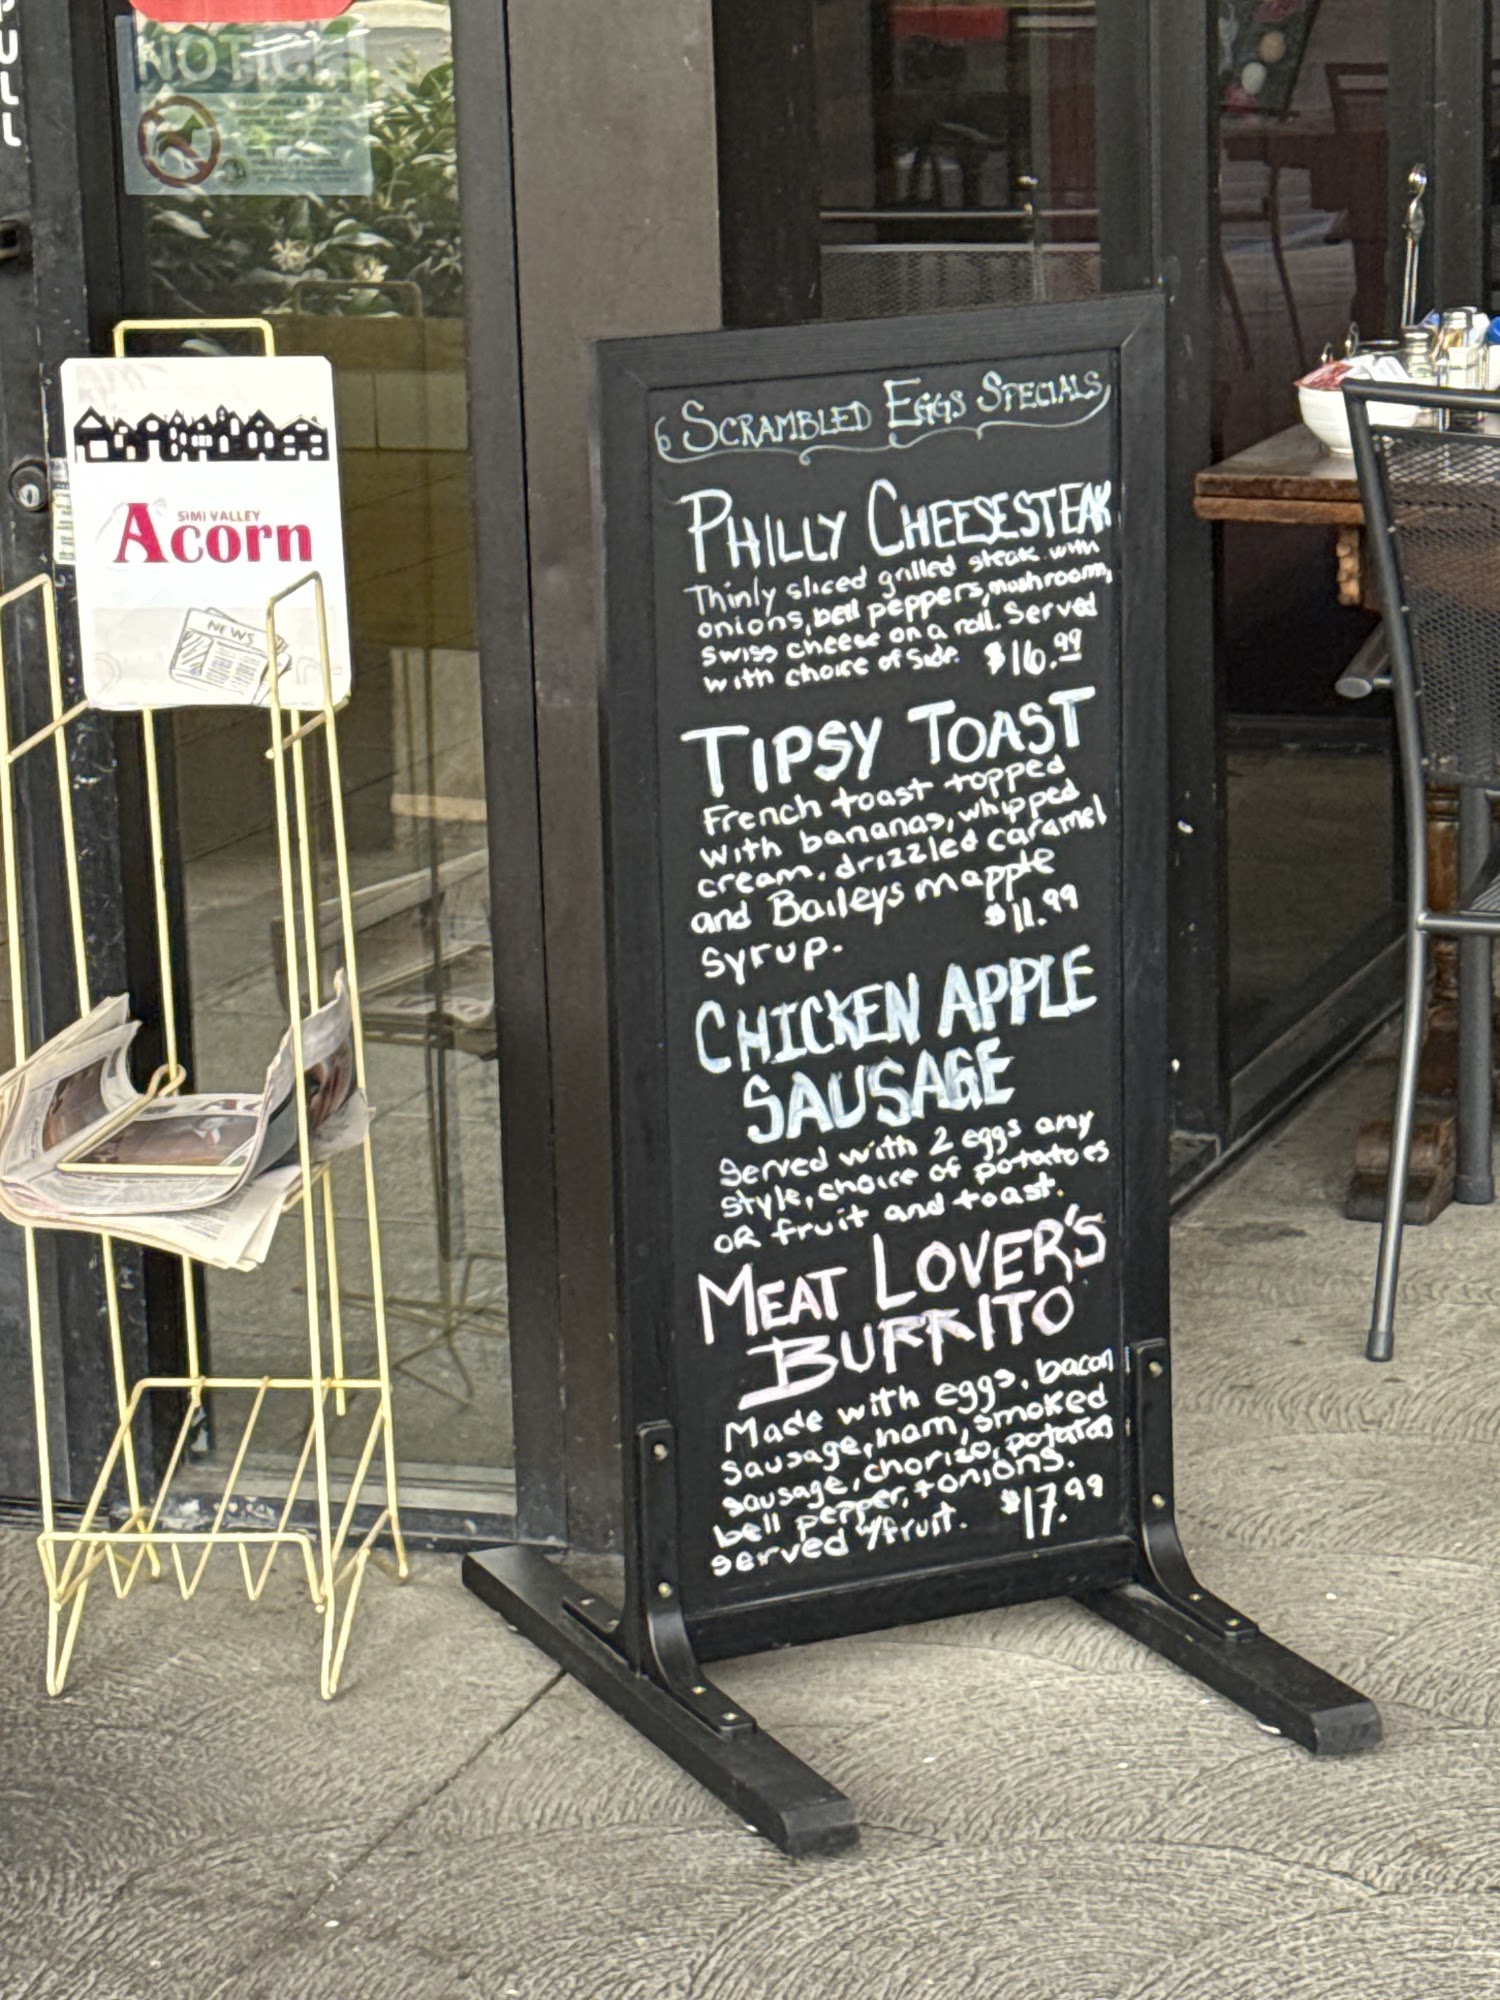 PULL
NOTICE
SIMI VALLEY
Acorn
NEWS
SCRAMBLED EGGS SPECIALS
PHILLY CHEESESTEAK
Thinly sliced grilled steak with
onions, bell peppers, mushroom,
swiss cheese on a roll. Served
with choice of side. $16.99
TIPSY TOAST
French toast topped
with bananas, whipped
cream, drizzled caramel
and Baileys mapple
syrup. $11.99
CHICKEN APPLE
SAUSAGE
Served with 2 eggs any
style, choice of potatoes
OR fruit and toast.
MEAT LOVER'S
BURRITO
Made with eggs, bacon
sausage, ham, smoked
sausage, chorizo, potatoes
bell pepper, + onions.
served w/fruit. $17.99